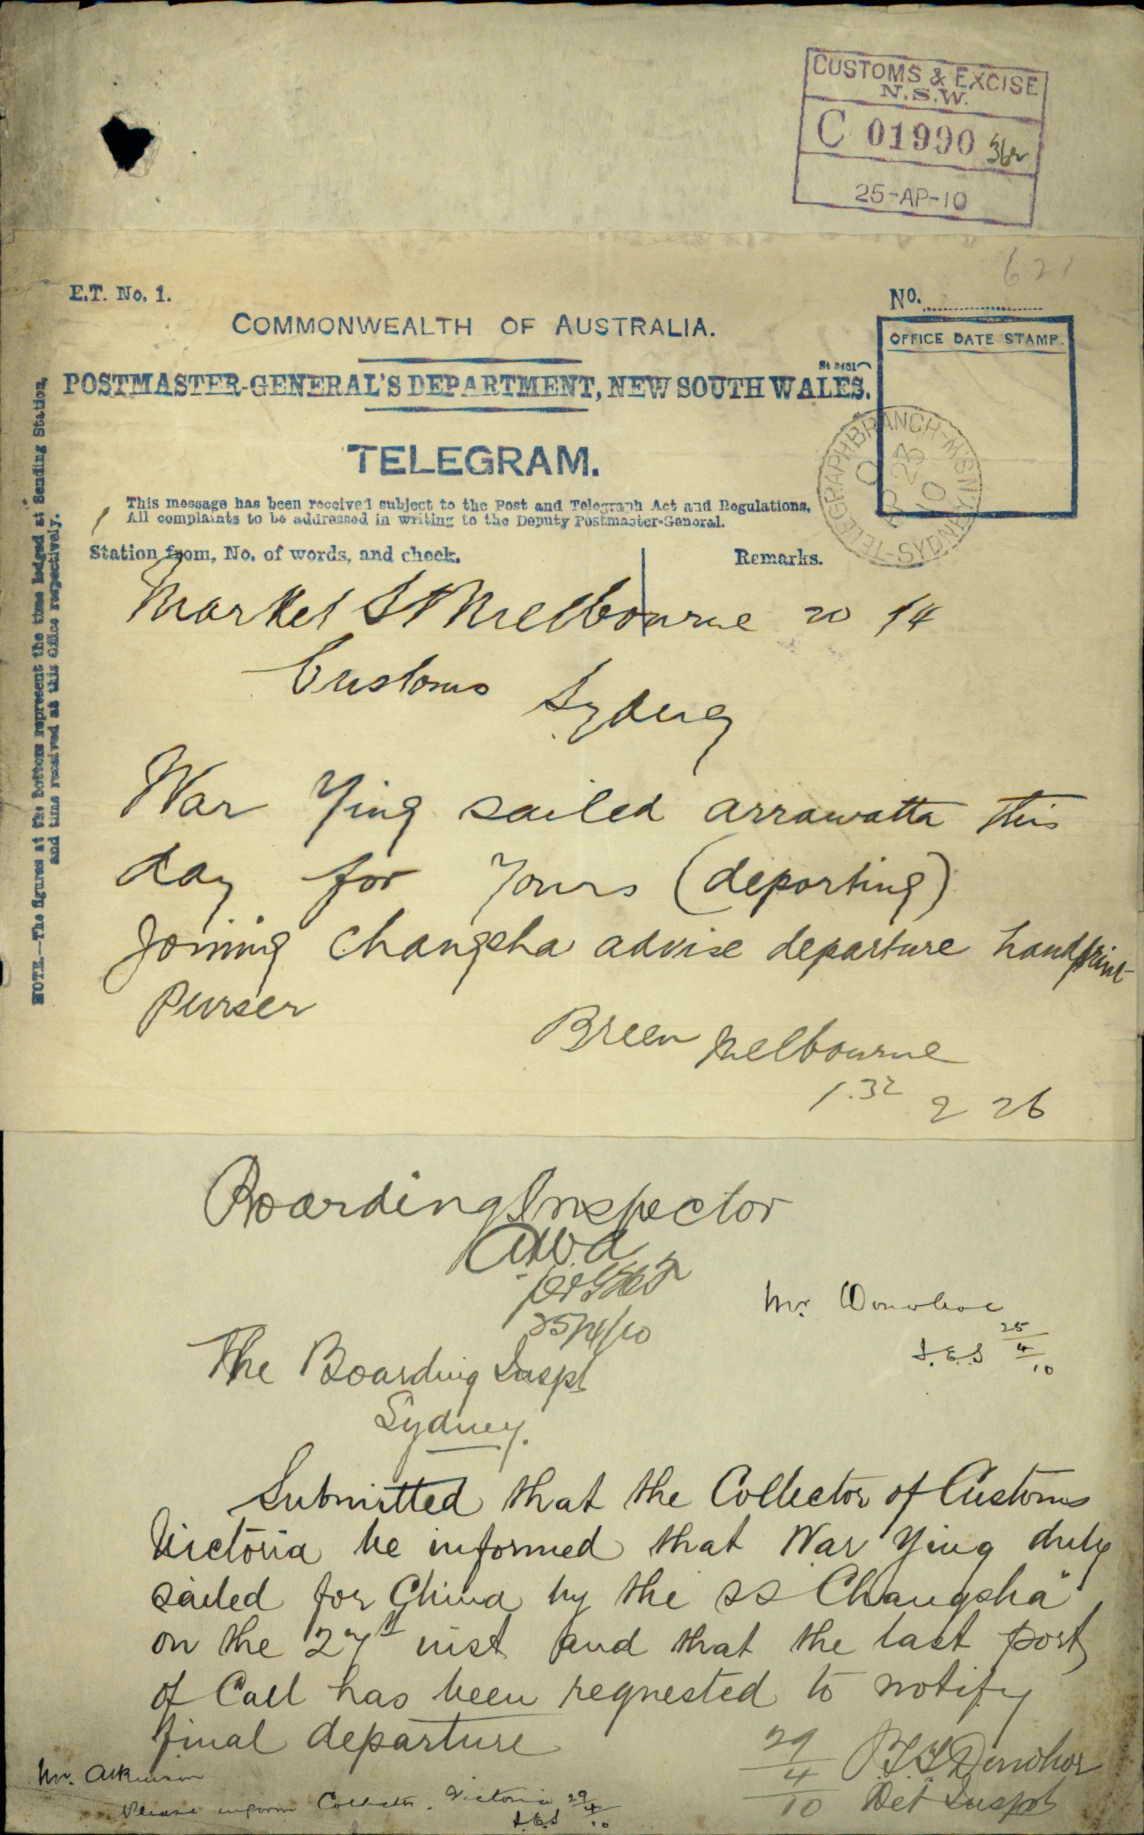 CUSTOMS & EXCISE
N.S.W.
C 01990
25-AP-10
621
E.T. No. 1.
No.
COMMONWEALTH OF AUSTRALIA.
OFFICE DATE STAMP.
POSTMASTER-GENERAL'S DEPARTMENT, NEW SOUTH WALES.
TELEGRAPH BRANCH-
AP 23
10
SYDNEY
TELEGRAM.
This message has been received subject to the Post and Telegraph Act and Regulations.
All complaints to be addressed in writing to the Deputy Postmaster-General.
Station from, No. of words, and check.
Remarks.
NOTE.—The figures at the bottom represent the time lodged at Sending Station,
and time received at this Office respectively.
Market St Melbourne 20 14
Customs Sydney
War Ying sailed arrawatta this
day for yours (deporting)
Joining Changsha advise departure handprint
Purser
Breen Melbourne
1.32 2 26
Boarding Inspector
25/4/10
Mr. Donohoe
25/4/10
The Boarding Inspr
Sydney.
Submitted that the Collector of Customs
Victoria be informed that War Ying duly
sailed for China by the SS "Changsha"
on the 27th inst and that the last port
of Call has been requested to notify
final departure
29/4/10
Donohoe
Det Inspr
Mr. Atkinson
Please inform Collector, Victoria 29/4/10